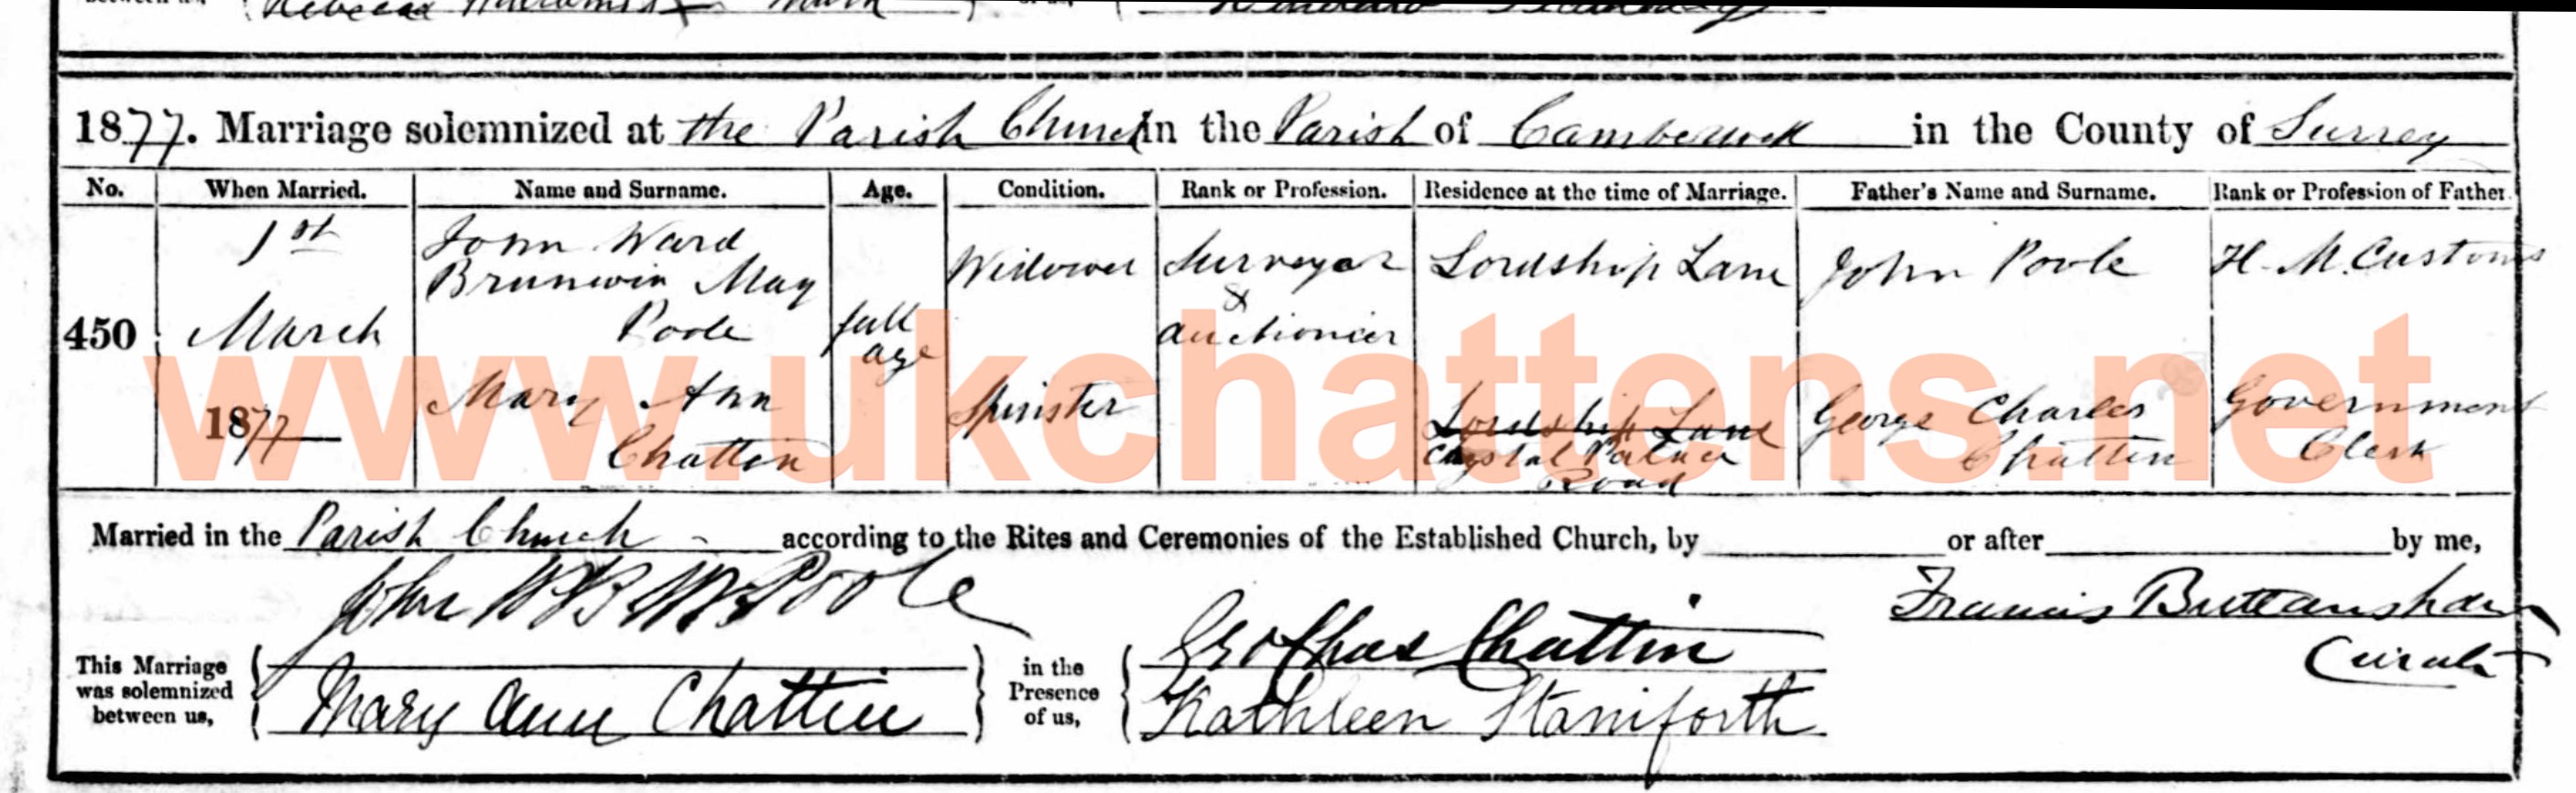 Rebecca
1877. Marriage solemnized at the Parish Church in the Parish of Camberwell in the County of Surrey
No. When Married. Name and Surname. Age. Condition. Rank or Profession. Residence at the time of Marriage. Father's Name and Surname. Rank or Profession of Father.
1st John Ward Widower Surveyor Lordship Lane John Poole H. M. Customs
Brunwin May &
450 March Poole full auctionier
age
1877 Mary Ann Spinster Lordship Lane George Charles Government
Chattin Crystal Palace Chattin Clerk
Road
www.ukchattens.net
Married in the Parish Church according to the Rites and Ceremonies of the Established Church, by or after by me,
John Poole Francis Buttanshaw
Curate
This Marriage was solemnized between us, Mary Ann Chattin
in the Presence of us, Geo Chas Chattin
Kathleen Staniforth